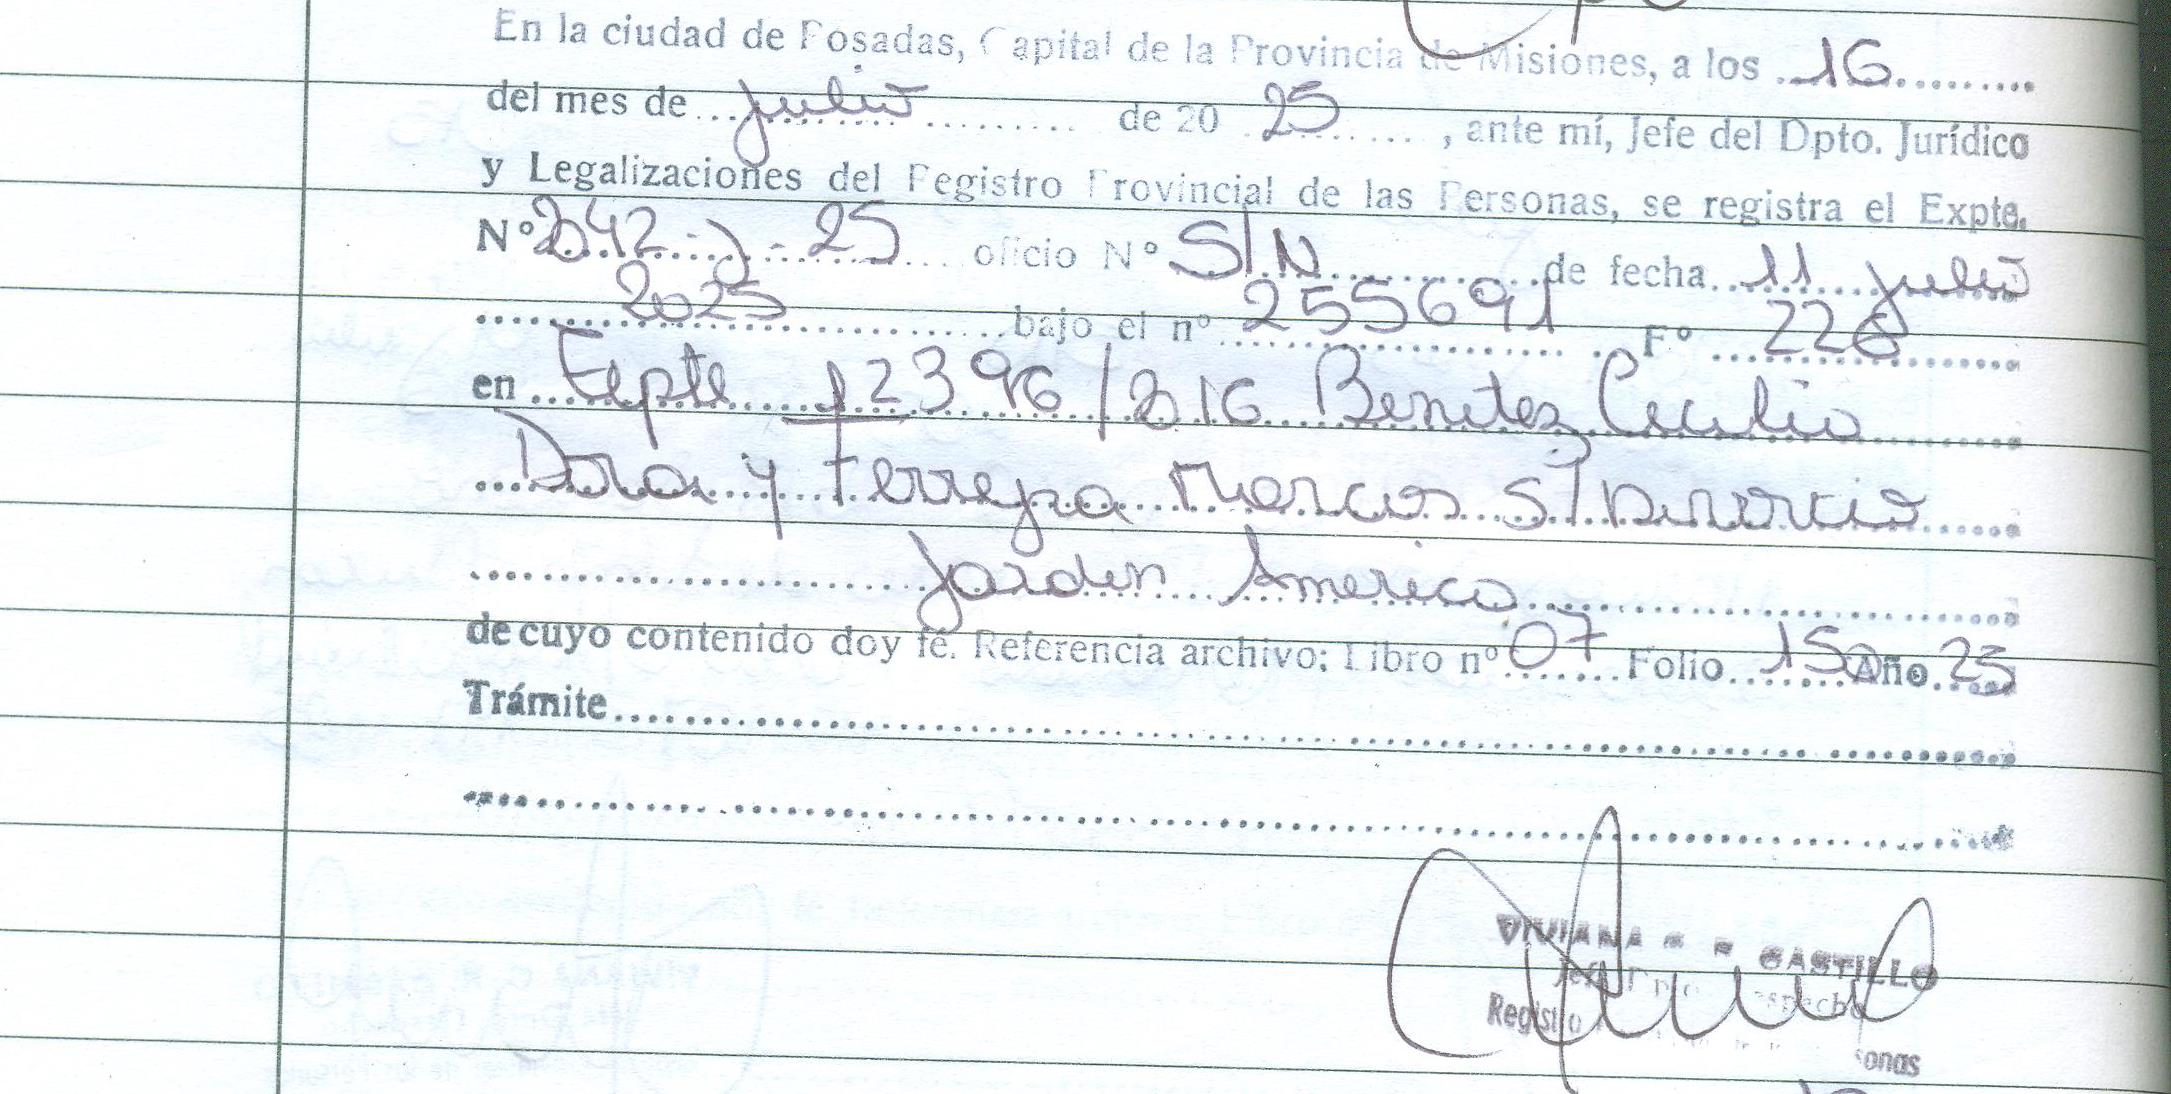 En la ciudad de Posadas, Capital de la Provincia de Misiones, a los 16
del mes de julio de 20 25, ante mí, Jefe del Dpto. Jurídico
y Legalizaciones del Registro Provincial de las Personas, se registra el Expte.
N° 2642-J-25 oficio N° S/N de fecha 11 julio
2025 bajo el n° 255691 F° 226
en Expte 12396/216 Benitez Cecilia
Dora y Ferreyra Marcos S/Divorcio
Jardin America
de cuyo contenido doy fé. Referencia archivo; Libro n° 07 Folio 150 Año 25
Trámite
VIVIANA CASTILLO
Jefe Despacho
Registro